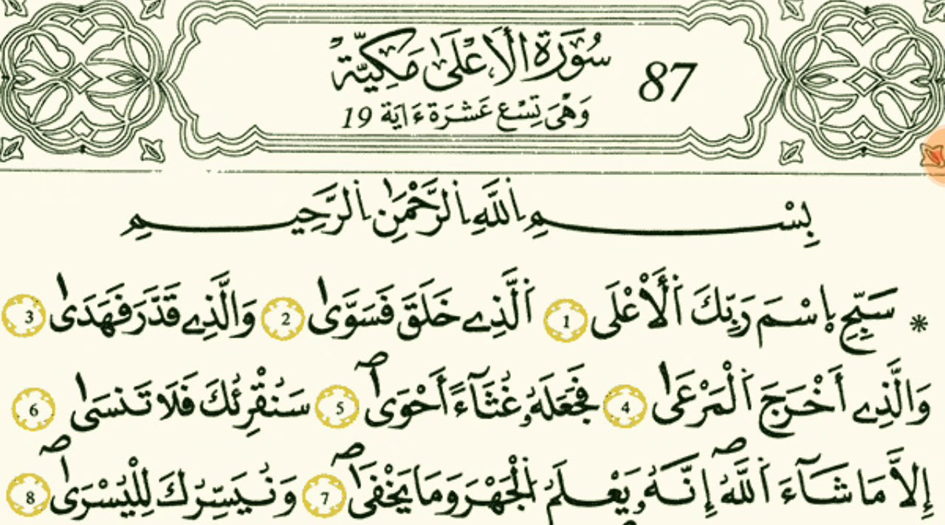 سُورَةُ الْأَعْلَىٰ مَكِّيَّةٌ 87
وَهْيَ تِسْعَ عَشْرَةَ ءَايَة 19
بِسْمِ اِ۬للَّهِ اِ۬لرَّحْمَٰنِ اِ۬لرَّحِيمِ
* سَبِّحِ اِ۪سْمَ رَبِّكَ اَ۬لْأَعْلَى 1 اَ۬لَّذِے خَلَقَ فَسَوَّىٰ 2 وَالَّذِے قَدَّرَ فَهَدَىٰ 3
وَالَّذِے أَخْرَجَ اَ۬لْمَرْعَىٰ 4 فَجَعَلَهُۥ غُثَآءً أَحْوَىٰۖ 5 سَنُقْرِئُكَ فَلَا تَنسَىٰٓ 6
إِلَّا مَا شَآءَ اَ۬للَّهُۖ إِنَّهُۥ يَعْلَمُ اُ۬لْجَهْرَ وَمَا يَخْفَىٰۖ 7 وَنُيَسِّرُكَ لِلْيُسْرَىٰۖ 8